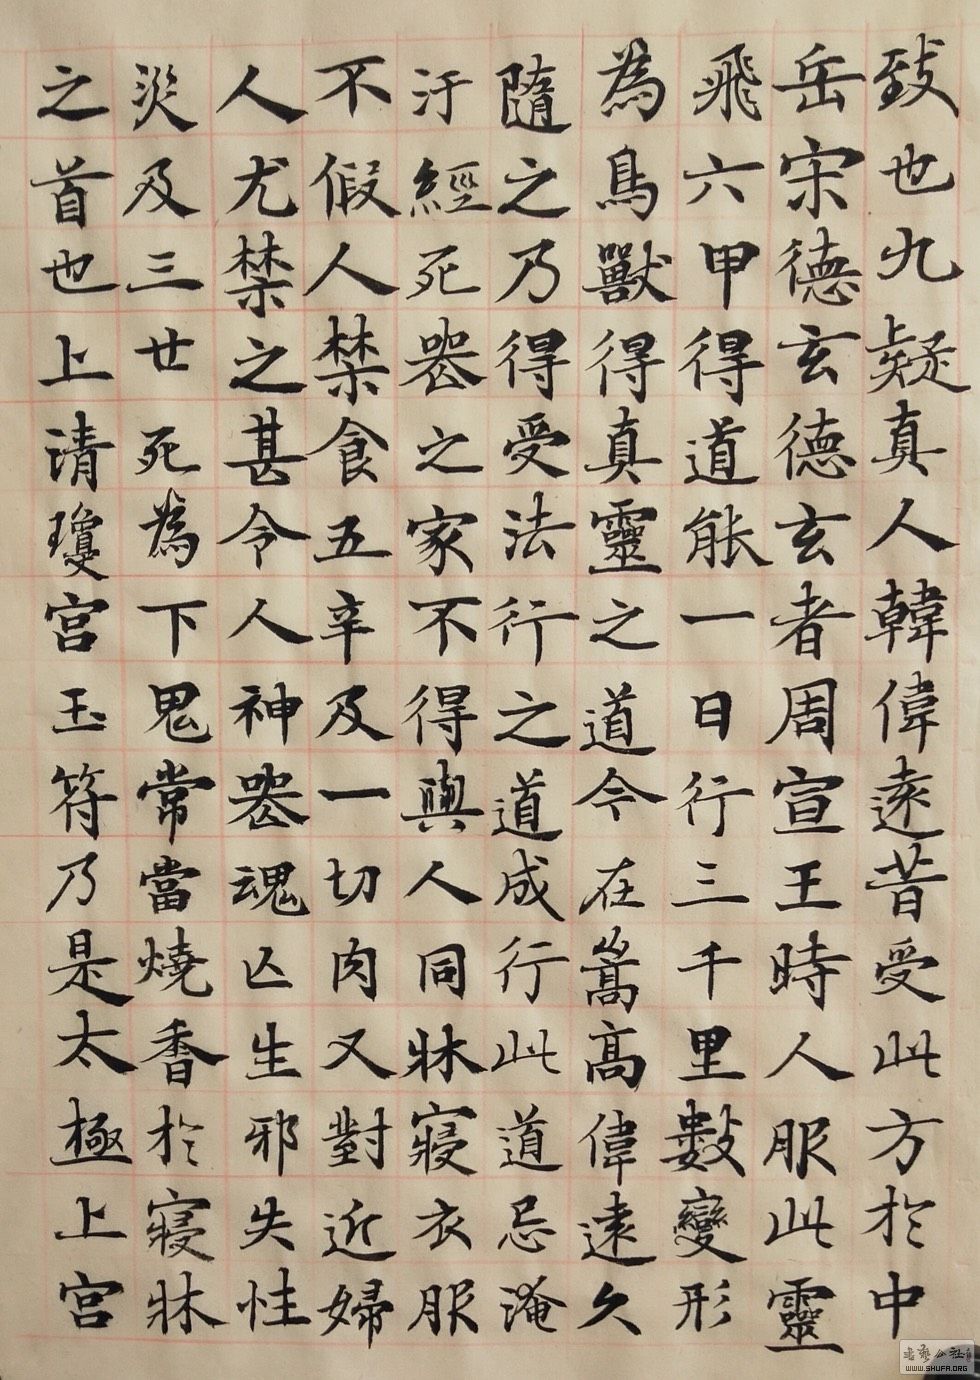 致也九疑真人韓偉遠昔受此方於中
岳宋德玄德玄者周宣王時人服此靈
飛六甲得道能一日行三千里數變形
為鳥獸得真靈之道今在嵩高偉遠久
隨之乃得受法行之道成行此道忌淹
汙經死喪之家不得與人同牀寢衣服
不假人禁食五辛及一切肉又對近婦
人尤禁之甚令人神喪魂亡生邪失性
災及三世死為下鬼常當燒香於寢牀
之首也上清瓊宮玉符乃是太極上宮
書藝公社
WWW.SHUFA.ORG